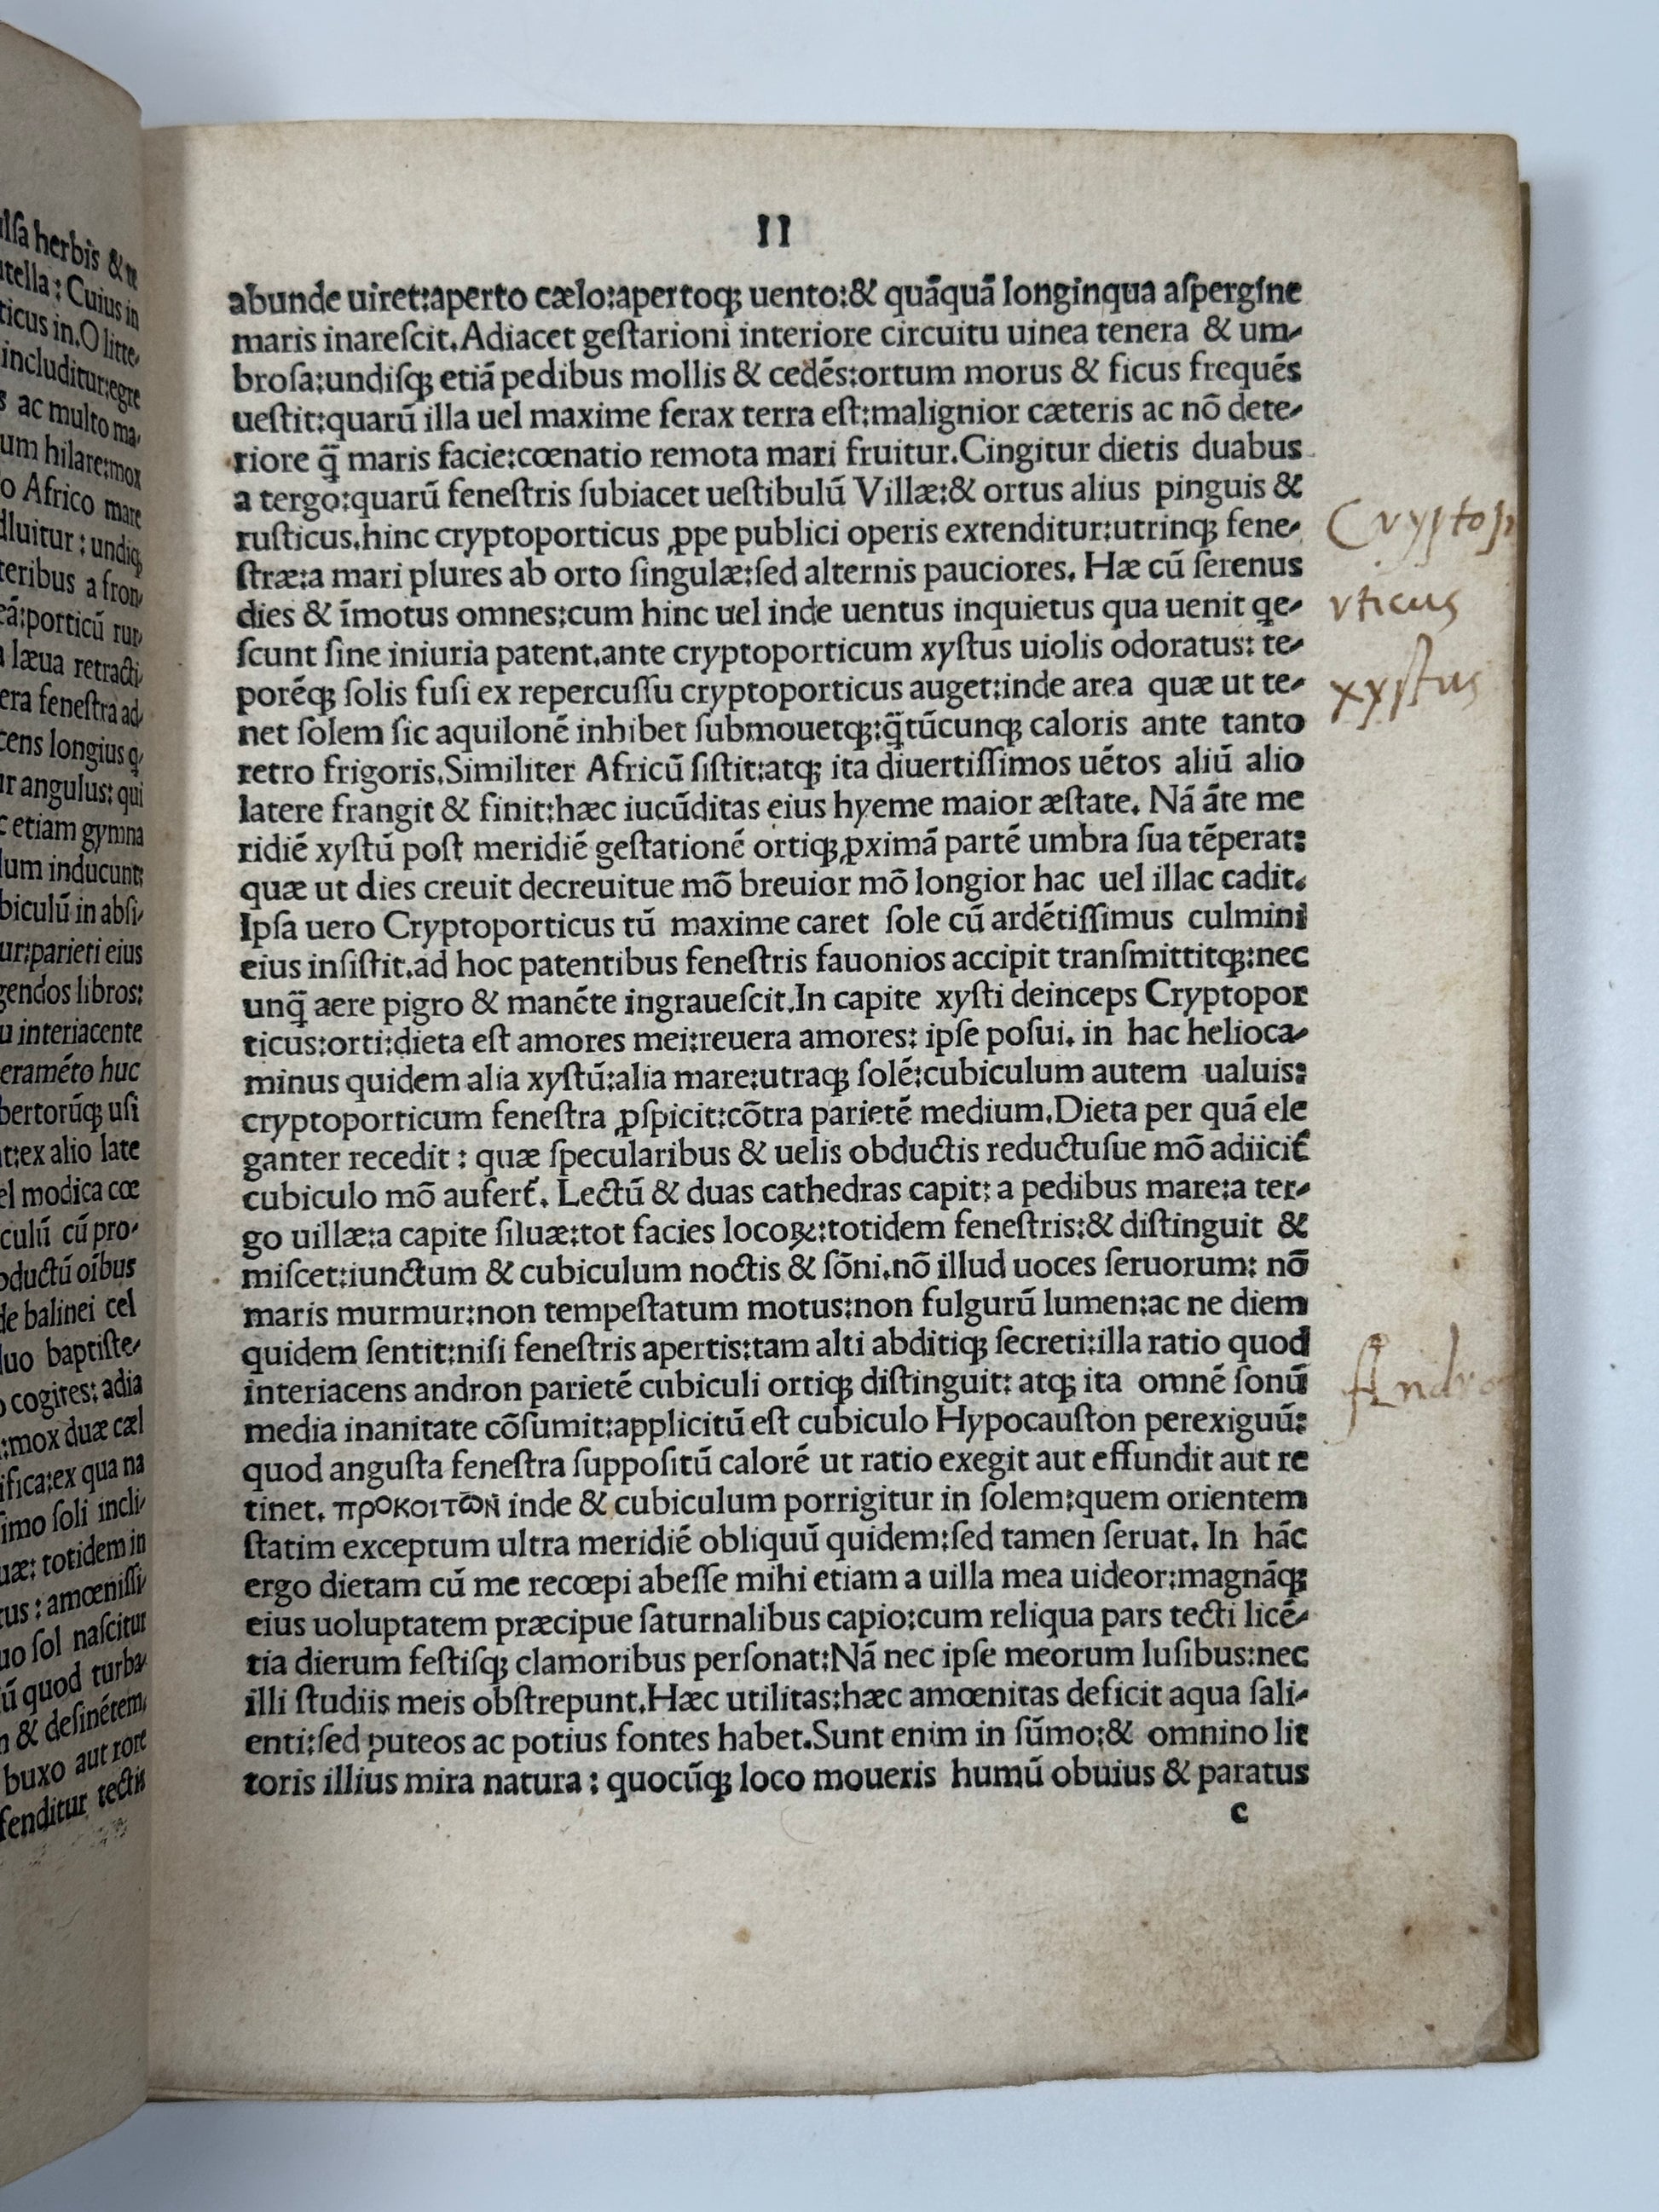 lſa herbis & te
tella: Cuius in
ticus in.O litte-
includitur:egre
s ac multo ma-
um hilare:mox
o Africo mare
lluitur: undiq;
teribus a fron-
eā:porticū rur
læua retracti-
era feneſtra ad-
cens longius q-
ur angulus: qui
c etiam gymna
lum inducunt:
biculū in abſi-
ur:parieti eius
gendos libros:
u interiacente
eramēto huc
bertorūq; uſi
t:ex alio late
el modica cœ
culū cū pro-
oductū oībus
de balinei cel
luo baptiſte-
o cogites: adia
:mox duæ cæl
ifica:ex qua na
imo ſoli incli-
uæ: totidem in
tus: amœniſſi-
uo ſol naſcitur
ū quod turba-
n & deſinētem,
buxo aut rore
fenditur tectis
II
abunde uiret:aperto cælo:apertoq; uento:& quāquā longinqua aſpergine
maris inareſcit.Adiacet geſtarioni interiore circuitu uinea tenera & um-
broſa:undiſq; etiā pedibus mollis & cedēs:ortum morus & ficus frequēs
ueſtit:quarū illa uel maxime ferax terra eſt:malignior cæteris ac nō dete-
riore q̄ maris facie:cœnatio remota mari fruitur.Cingitur dietis duabus
a tergo:quarū feneſtris ſubiacet ueſtibulū Villæ:& ortus alius pinguis &
ruſticus.hinc cryptoporticus ꝓpe publici operis extenditur:utrinq; fene-
ſtræ:a mari plures ab orto ſingulæ:ſed alternis pauciores. Hæ cū ſerenus
dies & īmotus omnes:cum hinc uel inde uentus inquietus qua uenit qe-
ſcunt ſine iniuria patent.ante cryptoporticum xyſtus uiolis odoratus: te-
porēq; ſolis fuſi ex repercuſſu cryptoporticus auget:inde area quæ ut te-
net ſolem ſic aquilonē inhibet ſubmouetq;:q̄tūcunq; caloris ante tanto
retro frigoris.Similiter Africū ſiſtit:atq; ita diuertiſſimos uētos aliū alio
latere frangit & finit:hæc iucūditas eius hyeme maior æſtate. Nā āte me
ridiē xyſtū poſt meridiē geſtationē ortiq; ꝓximā partē umbra ſua tēperat:
quæ ut dies creuit decreuitue mō breuior mō longior hac uel illac cadit.
Ipſa uero Cryptoporticus tū maxime caret ſole cū ardētiſſimus culmini
eius inſiſtit.ad hoc patentibus feneſtris fauonios accipit tranſmittitq;:nec
unq̄ aere pigro & manēte ingraueſcit.In capite xyſti deinceps Cryptopor
ticus:orti:dieta eſt amores mei:reuera amores: ipſe poſui. in hac helioca-
minus quidem alia xyſtū:alia mare:utraq; ſolē:cubiculum autem ualuis:
cryptoporticum feneſtra ꝓſpicit:cōtra parietē medium.Dieta per quā ele
ganter recedit: quæ ſpecularibus & uelis obductis reductuſue mō adiicit̄
cubiculo mō aufert̄. Lectū & duas cathedras capit: a pedibus mare:a ter-
go uillæ:a capite ſiluæ:tot facies locoꝝ:totidem feneſtris:& diſtinguit &
miſcet:iunctum & cubiculum noctis & ſōni.nō illud uoces ſeruorum: nō
maris murmur:non tempeſtatum motus:non fulgurū lumen:ac ne diem
quidem ſentit:niſi feneſtris apertis:tam alti abditiq; ſecreti:illa ratio quod
interiacens andron parietē cubiculi ortiq; diſtinguit: atq; ita omnē ſonū
media inanitate cōſumit:applicitū eſt cubiculo Hypocauſton perexiguū:
quod anguſta feneſtra ſuppoſitū calorē ut ratio exegit aut effundit aut re
tinet. προκοιτῶν inde & cubiculum porrigitur in ſolem:quem orientem
ſtatim exceptum ultra meridiē obliquū quidem:ſed tamen ſeruat. In hāc
ergo dietam cū me recœpi abeſſe mihi etiam a uilla mea uideor:magnāq;
eius uoluptatem præcipue ſaturnalibus capio:cum reliqua pars tecti licē-
tia dierum feſtiſq; clamoribus perſonat:Nā nec ipſe meorum luſibus:nec
illi ſtudiis meis obſtrepunt.Hæc utilitas:hæc amœnitas deficit aqua ſali-
enti:ſed puteos ac potius fontes habet.Sunt enim in ſūmo:& omnino lit
toris illius mira natura: quocūq; loco moueris humū obuius & paratus
c
Cryptop
rticus
xyſtus
Andro